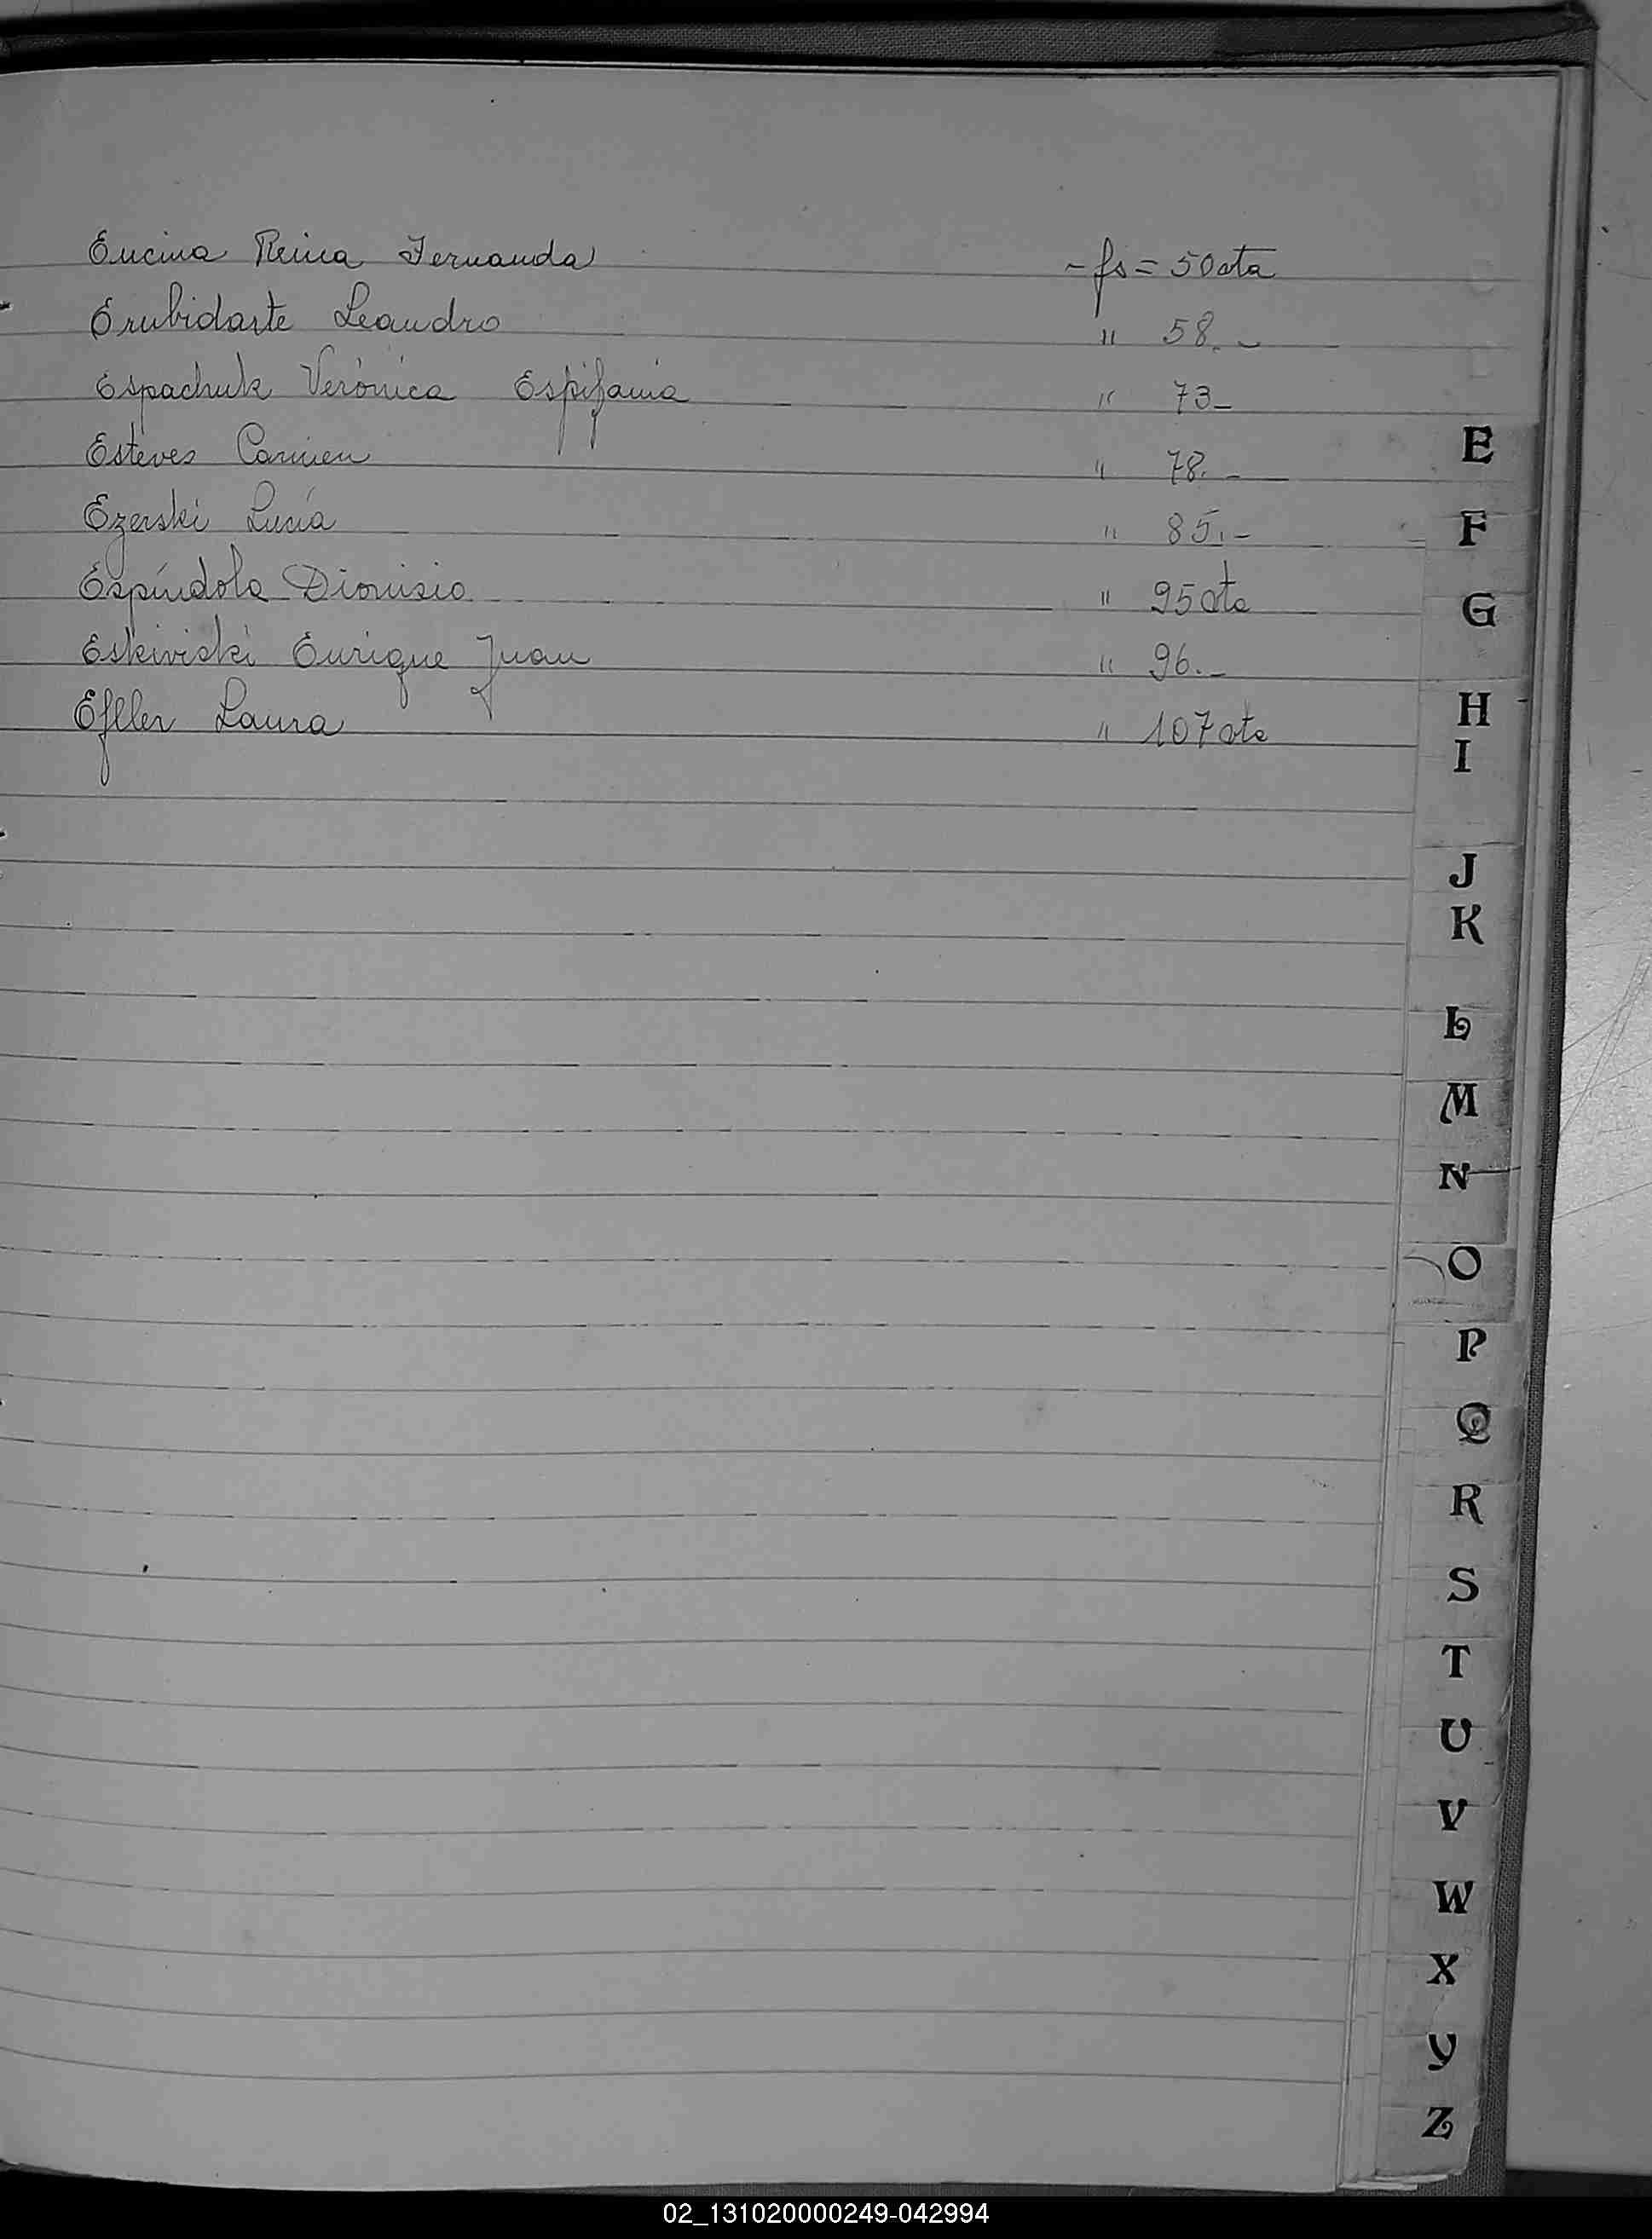 Encina Reina Fernanda - fs = 50 vta
Erubidarte Leandro " 58.-
Espachuk Verónica Espifania " 73-
Esteves Carmen " 78.-
Ezerski Lucía " 85.-
Espíndola Dionisio " 95 vta
Eskiviski Enrique Juan " 96.-
Efller Laura " 107 vta
E
F
G
H
I
J
K
L
M
N
O
P
Q
R
S
T
U
V
W
X
Y
Z
02_131020000249-042994